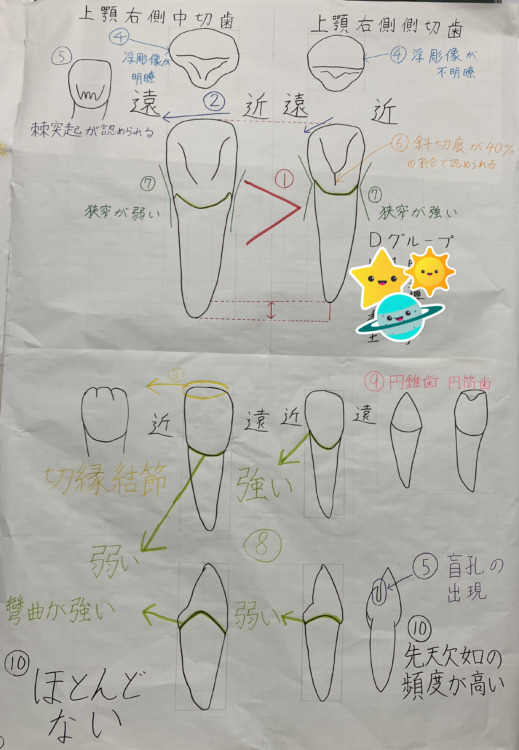 上顎右側中切歯
上顎右側側切歯
④
浮彫像が
明瞭
④浮彫像が
不明瞭
⑤
棘突起が認められる
遠 ② 近
遠 近
⑥斜切痕が40%
の割合で認められる
⑦
狭窄が弱い
①
⑦
狭窄が強い
Dグループ
③
切縁結節
近 遠
近 遠
⑨円錐歯 円筒歯
強い
弱い
⑧
彎曲が強い
弱い
⑤盲孔の
出現
⑩
ほとんど
ない
⑩
先天欠如の
頻度が高い